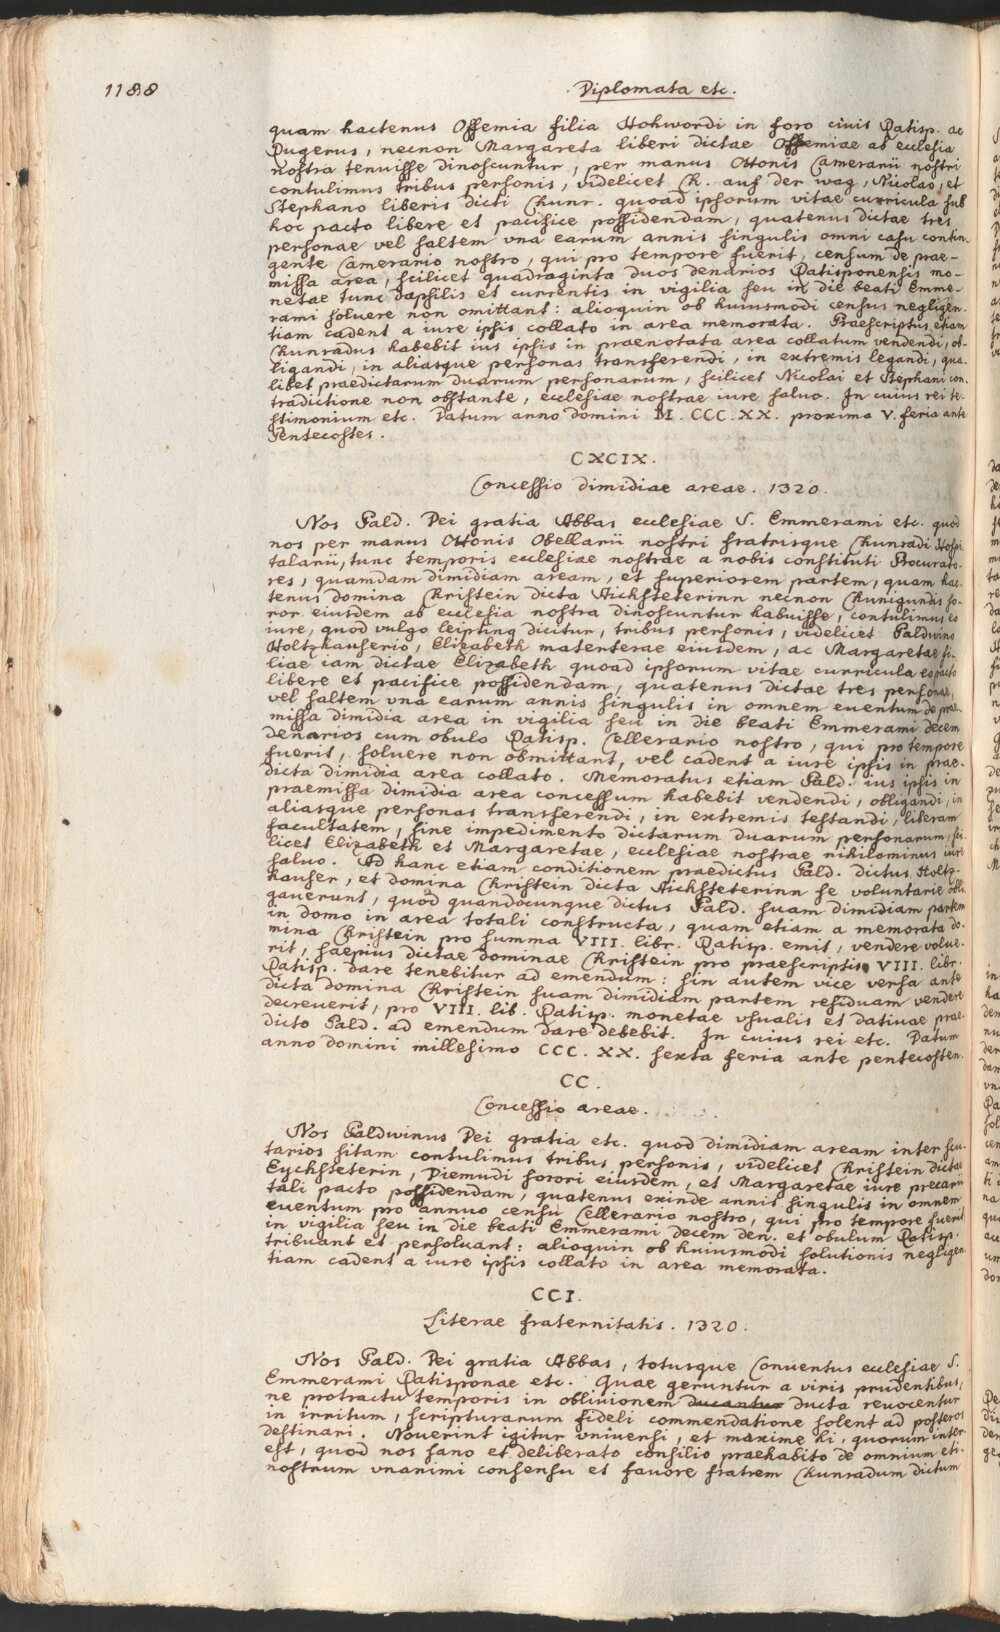 1188
Diplomata etc.
quam hactenus Offemia filia Hohwordi in foro civis Ratisp. ac
Rugerus, necnon Margareta liberi dictae Offemiae ab ecclesia
nostra tenuisse dinoscuntur, per manus Ottonis Camerarii nostri
contulimus tribus personis, videlicet Ch. auf der wag, Nicolao, et
Stephano liberis dicti Chunr. quoad ipsorum vitae curricula sub
hoc pacto libere et pacifice possidendam, quatenus dictae tres
personae vel saltem vna earum annis singulis omni casu contin-
gente Camerario nostro, qui pro tempore fuerit, censum de prae-
missa area, scilicet quadraginta duos denarios Ratisponensis mo-
netae tunc dapsilis et currentis in vigilia seu in die beati Emme-
rami soluere non omittant: alioquin ob huiusmodi census negligen-
tiam cadent a iure ipsis collato in area memorata. Praescriptus etiam
Chunradus habebit ius ipsis in praenotata area collatum vendendi, ob-
ligandi, in aliasque personas transferendi, in extremis legandi, qua-
libet praedictarum duarum personarum, scilicet Nicolai et Stephani con-
tradictione non obstante, ecclesiae nostrae iure saluo. In cuius rei te-
stimonium etc. Datum anno Domini M. CCC. XX. proxima V. feria ante
Pentecostes.
CXCIX.
Concessio dimidiae areae. 1320.
Nos Bald. Dei gratia Abbas ecclesiae S. Emmerami etc. quod
nos per manus Ottonis Obellarii nostri fratrisque Chunradi Hospi-
talarii, tunc temporis ecclesiae nostrae a nobis constituti Procurato-
res, quamdam dimidiam aream, et superiorem partem, quam hac-
tenus domina Christein dicta Aichsteterinn necnon Chunigundis so-
ror eiusdem ab ecclesia nostra dinoscuntur habuisse, contulimus eo
iure, quod vulgo leipting dicitur, tribus personis, videlicet Baldwino
Holtzhauserio, Elizabeth materterae eiusdem, ac Margaretae fi-
liae iam dictae Elizabeth quoad ipsorum vitae curricula eo pacto
libere et pacifice possidendam, quatenus dictae tres personae,
vel saltem vna earum annis singulis in omnem euentum de prae-
missa dimidia area in vigilia seu in die beati Emmerami decem
denarios cum obulo Ratisp. Cellerario nostro, qui pro tempore
fuerit, soluere non obmittant, vel cadent a iure ipsis in prae-
dicta dimidia area collato. Memoratus etiam Bald. ius ipsis in
praemissa dimidia area concessum habebit vendendi, obligandi, in
aliasque personas transferendi, in extremis testandi, liberam
facultatem, sine impedimento dictarum duarum personarum, sci-
licet Elizabeth et Margaretae, ecclesiae nostrae nihilominus iure
saluo. Ad hanc etiam conditionem praedictus Bald. dictus Holtz-
hauser, et domina Christein dicta Aichsteterinn se voluntarie obli-
gauerunt, quod quandocunque dictus Bald. suam dimidiam partem
in domo in area totali constructa, quam etiam a memorata do-
mina Christein pro summa VIII. libr. Ratisp. emit, vendere volue-
rit, saepius dictae dominae Christein pro praescriptis VIII. libr.
Ratisp. dare tenebitur ad emendum: sin autem vice versa ante
dicta domina Christein suam dimidiam partem residuam vendere
decreuerit, pro VIII. lib. Ratisp. monetae vsualis et datiuae prae-
dicto Bald. ad emendum dare debebit. In cuius rei etc. Datum
anno domini millesimo CCC. XX. sexta feria ante pentecosten.
CC.
Concessio areae.
Nos Baldwinus Dei gratia etc. quod dimidiam aream inter scu-
tarios sitam contulimus tribus personis, videlicet Christein dictae
Eychsteterin, Diemudi sorori eiusdem, et Margaretae iure precarii
tali pacto possidendam, quatenus exinde annis singulis in omnem
euentum pro annuo censu Cellerario nostro, qui pro tempore fuerit
in vigilia seu in die beati Emmerami decem den. et obulum Ratisp.
tribuant et persoluant: alioquin ob huiusmodi solutionis negligen-
tiam cadent a iure ipsis collato in area memorata.
CCI.
Literae fraternitatis. 1320.
Nos Bald. Dei gratia Abbas, totusque Conuentus ecclesiae S.
Emmerami Ratisponae etc. Quae geruntur a viris prudentibus,
ne protractu temporis in obliuionem ducantur ducta reuocentur
in irritum, scripturarum fideli commendatione solent ad posteros
destinari. Nouerint igitur vniuersi, et maxime hi, quorum inter-
est, quod nos sano et deliberato consilio praehabito de omnium eti-
nostrum vnanimi consensu et fauore fratrem Chunradum dictum